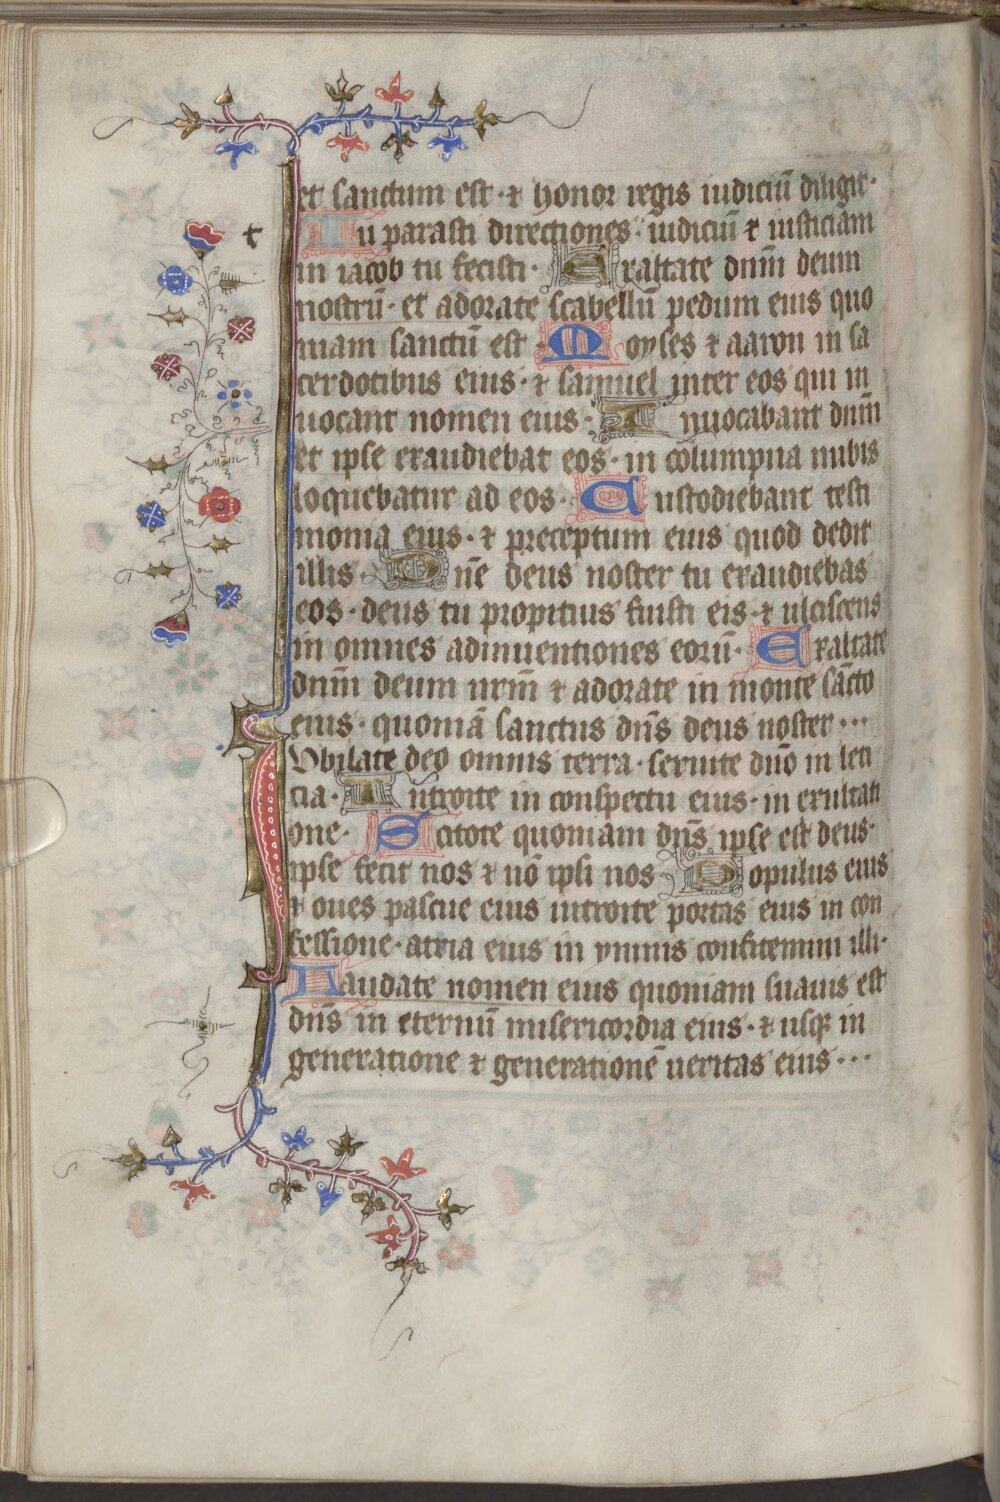 et sanctum est · ⁊ honor regis iudiciū diligit ·
t
Tu parasti directiones · iudiciū ⁊ iusticiam
in iacob tu fecisti · Exaltate dnm̄ deum
nostrū · et adorate scabellū pedum eius quo
niam sanctū est · Moyses ⁊ aaron in sa
cerdotibus eius · ⁊ samuel inter eos qui in
uocant nomen eius · Inuocabant dnm̄
et ipse exaudiebat eos · in columpna nubis
loquebatur ad eos · Custodiebant testi
monia eius · ⁊ preceptum eius quod dedit
illis · Dn̄e deus noster tu exaudiebas
eos · deus tu propitius fuisti eis · ⁊ ulciscens
in omnes adinuentiones eorū · Exaltate
dnm̄ deum nrm̄ ⁊ adorate in monte sc̄to
eius · quoniā sanctus dn̄s deus noster ···
Iubilate deo omnis terra · seruite dn̄o in leti
cia · Introite in conspectu eius · in exultati
one · Scitote quoniam dn̄s ipse est deus ·
ipse fecit nos ⁊ nō ipsi nos · Populus eius
⁊ oues pascue eius introite portas eius in con
fessione · atria eius in ymnis confitemini illi ·
Laudate nomen eius quoniam suauis est
dn̄s in eternū misericordia eius · ⁊ usqꝫ in
generatione ⁊ generationē ueritas eius ···